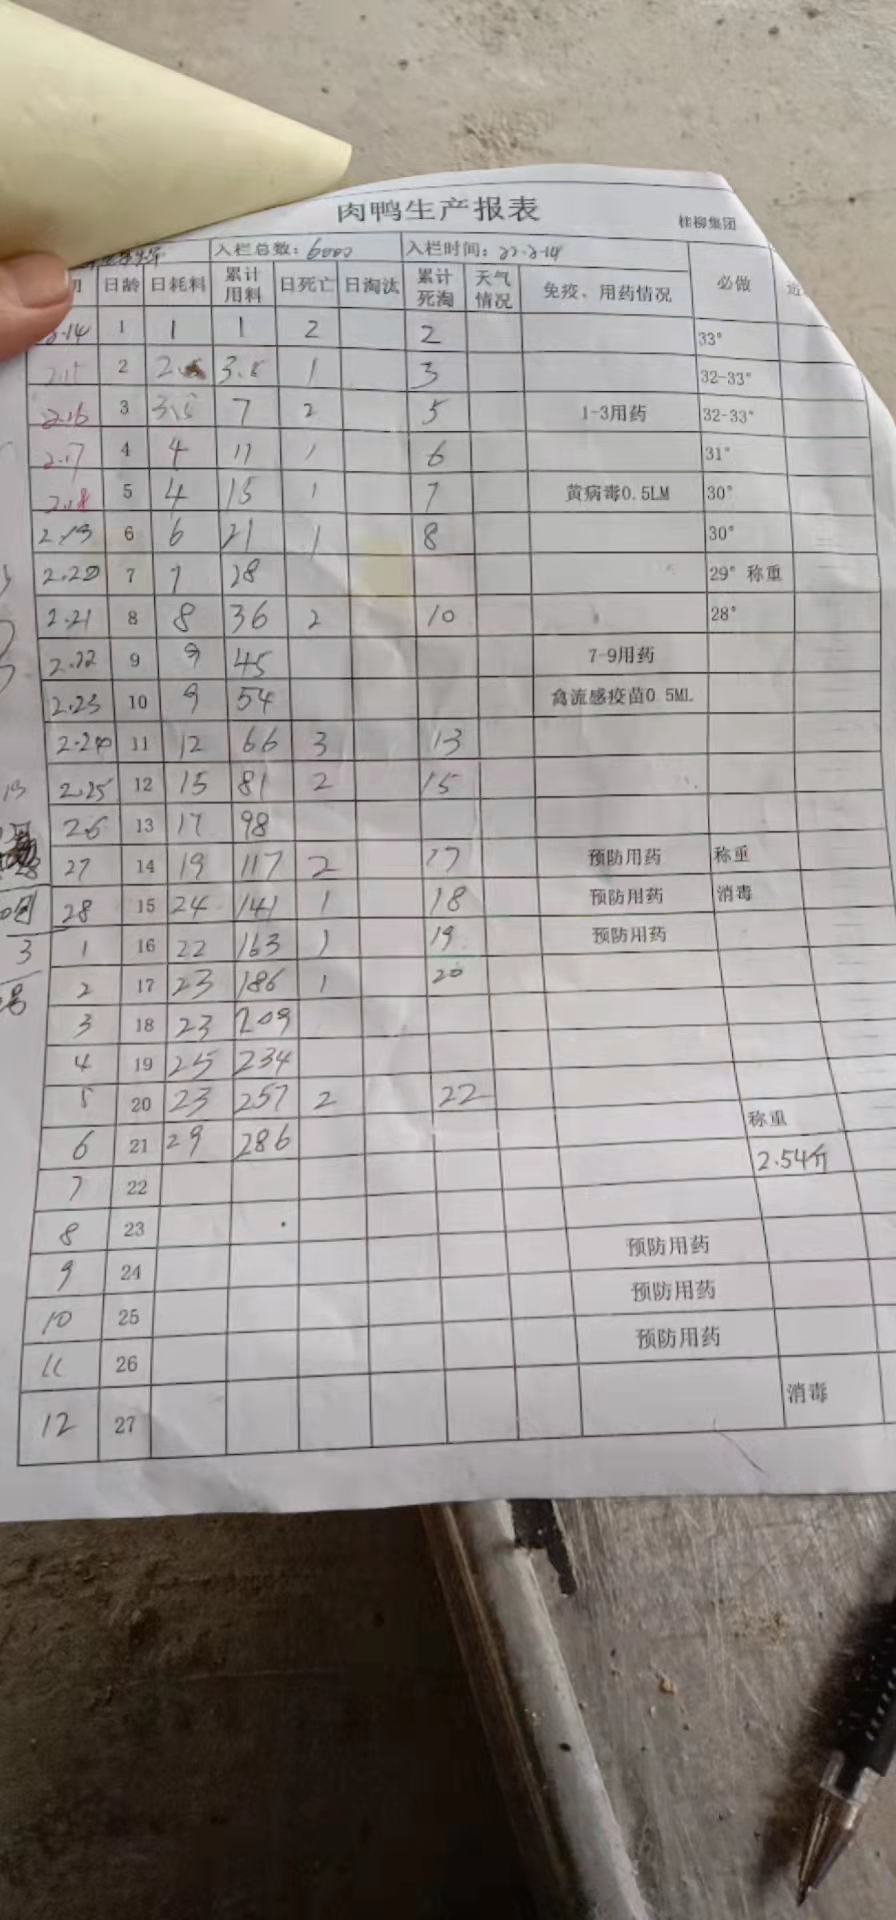 肉鸭生产报表
桂柳集团
入栏总数：6000 入栏时间：22-2-14
日龄 日耗料 累计用料 日死亡 日淘汰 累计死淘 天气情况 免疫、用药情况 必做
2.14 1 1 1 2 2 33°
2.15 2 3.5 1 3 32-33°
2.16 3 3.5 7 2 5 1-3用药 32-33°
2.17 4 4 11 1 6 31°
2.18 5 4 15 1 7 黄病毒0.5LM 30°
2.19 6 6 21 1 8 30°
2.20 7 7 28 29° 称重
2.21 8 8 36 2 10 28°
2.22 9 9 45 7-9用药
2.23 10 9 54 禽流感疫苗0.5ML
2.24 11 12 66 3 13
2.25 12 15 81 2 15
26 13 17 98
27 14 19 117 2 17 预防用药 称重
28 15 24 141 1 18 预防用药 消毒
3 1 16 22 163 1 19 预防用药
2 17 23 186 1 20
3 18 23 209
4 19 25 234
5 20 23 257 2 22 称重
6 21 29 286 2.54斤
7 22
8 23 预防用药
9 24 预防用药
10 25 预防用药
11 26
12 27 消毒